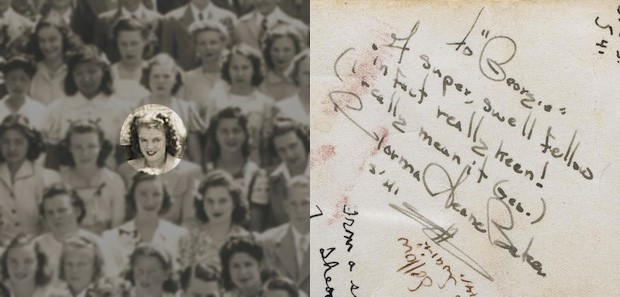 to "Georgie"
A super, swell fellow
in fact really keen!
(I really mean it Geo.)
Norma Jeane Baker
S'41.
S'41
from a s